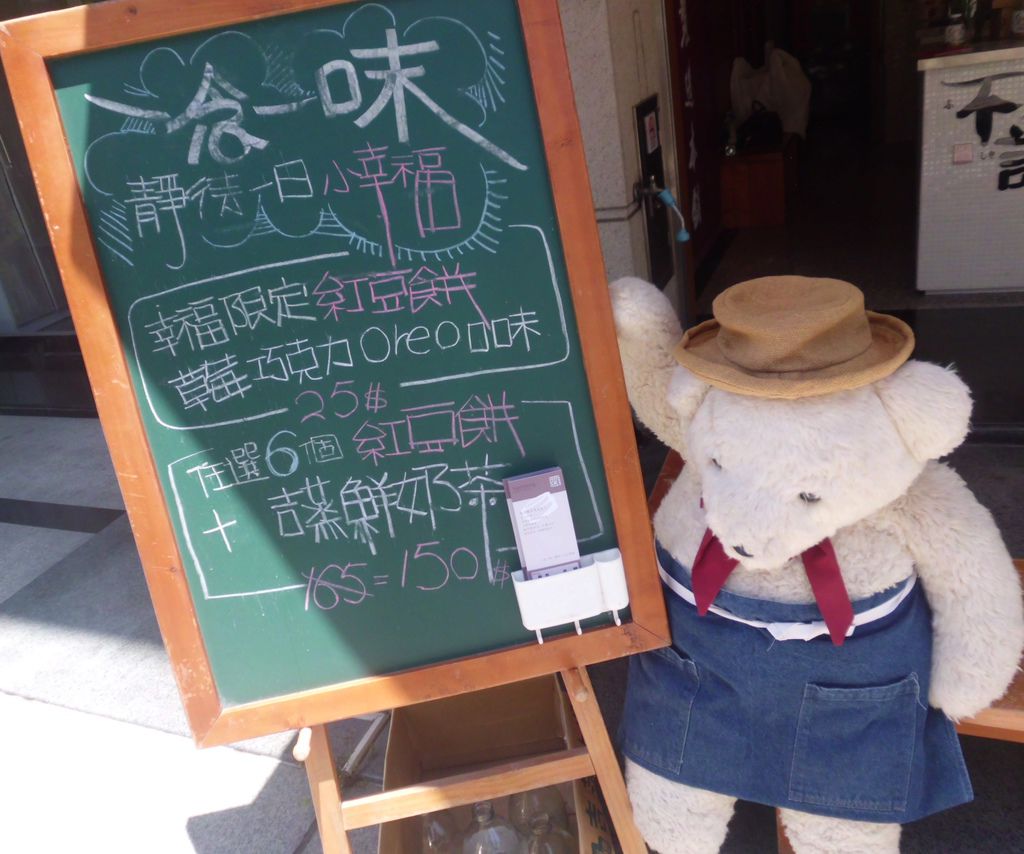 一念一味
靜待一日小幸福
幸福限定紅豆餅
草莓巧克力Oreo口味
25$
任選6個紅豆餅
+ 古蒸鮮奶茶
165=150$